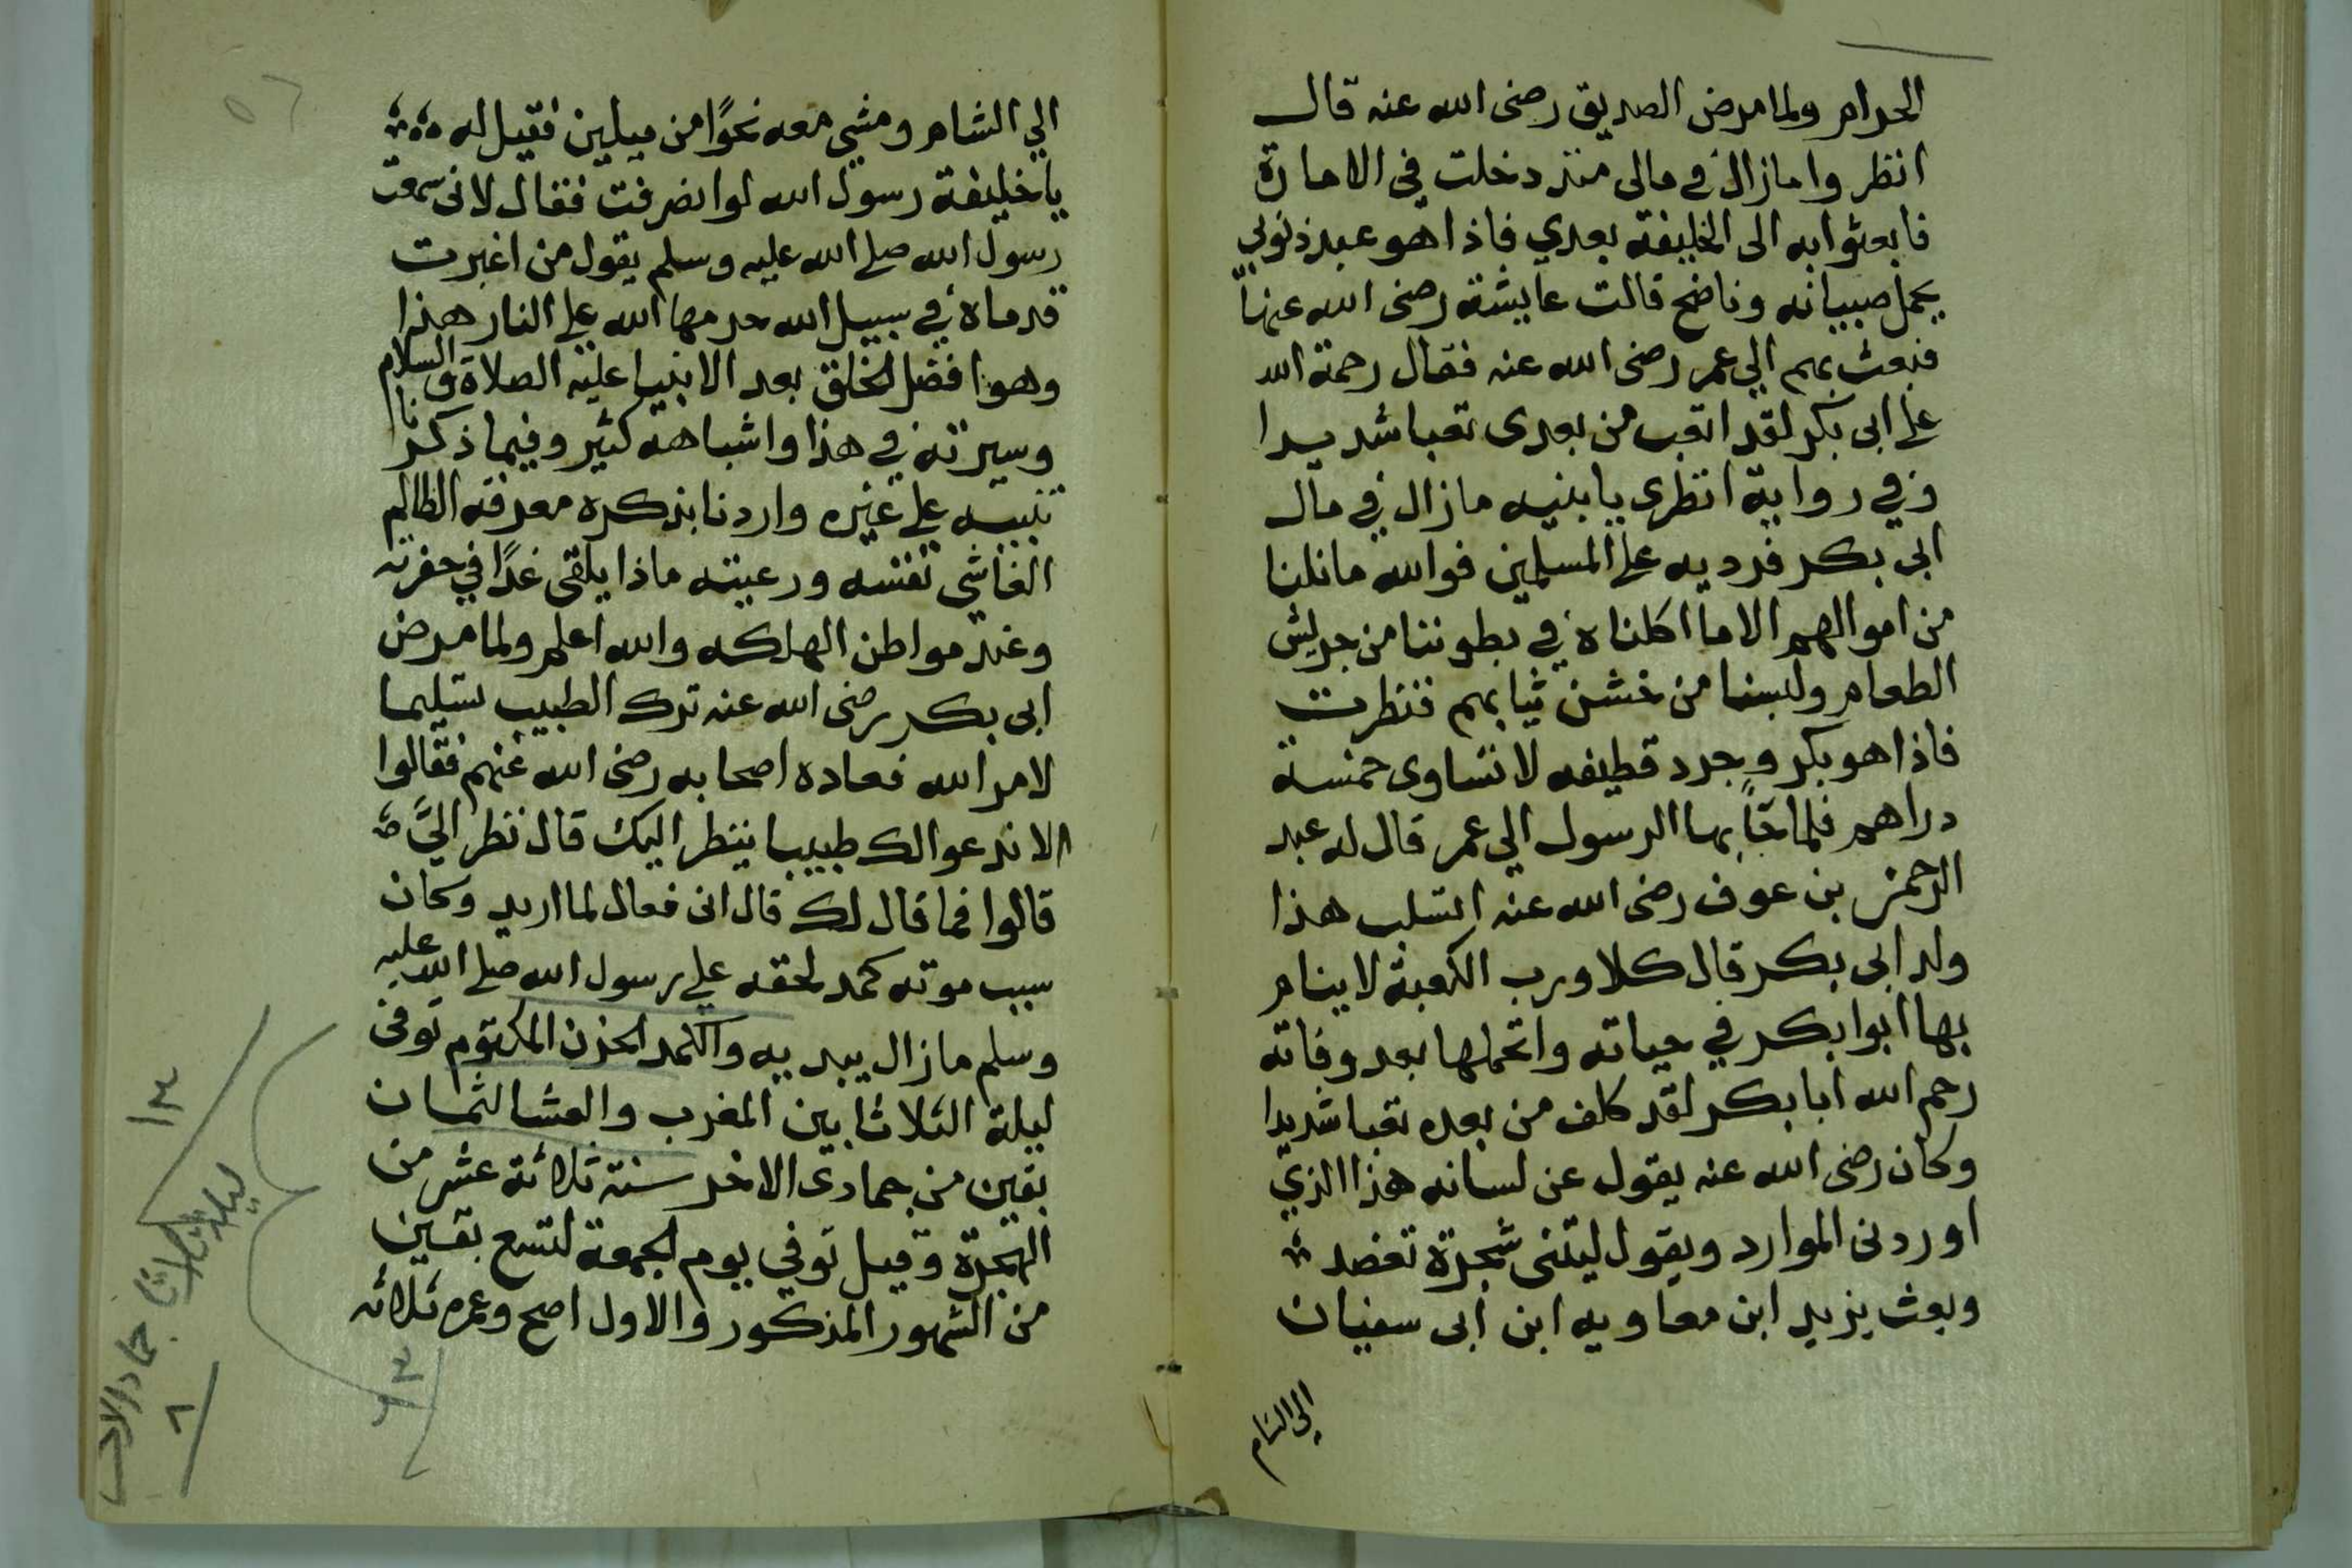 الحرام ولما مرض الصديق رضى الله عنه قال
انظروا مازال في مالى منذ دخلت في الامارة
فابعثوا به الى الخليفة بعدي فاذا هو عبد نوبي
يحمل صبيانه وناضح قالت عايشة رضى الله عنها
فبعث بهم الي عمر رضى الله عنه فقال رحمة الله
على ابى بكر لقد اتعب من بعدى تعبا شديدا
وفي رواية انظرى يا بنيه مازال في مال
ابى بكر فرديه على المسلمين فوالله ما نلنا
من اموالهم الا ما اكلناه في بطوننا من جريش
الطعام ولبسنا من خشن ثيابهم فنظرت
فاذا هو بكر وجرد قطيفه لا تساوى خمسة
دراهم فلما جآ بها الرسول الي عمر قال له عبد
الرحمن بن عوف رضى الله عنه اتسلب هذا
ولد ابى بكر قال كلا ورب الكعبة لا ينام
بها ابوا بكر في حياته واتحملها بعد وفاته
رحم الله ابا بكر لقد كلف من بعده تعبا شديدا
وكان رضى الله عنه يقول عن لسانه هذا الذي
اوردنى الموارد ويقول ليتنى شجرة تعضد
وبعث يزيد ابن معاويه ابن ابى سفيان
الي الشام
الي الشام ومشي معه نحوًا من ميلين فقيل له
يا خليفة رسول الله لو انصرفت فقال لانى سمعت
رسول الله صلى الله عليه وسلم يقول من اغبرت
قدماه في سبيل الله حرمها الله على النار هذا
وهو افضل الخلق بعد الانبيا عليه الصلاة والسلام
وسيرته في هذا واشباهه كثير وفيما ذكرنا
تنبيه على غيره واردنا بذكره معرفة الظالم
الغاشي نفسه ورعيته ماذا يلقى غدًا في حفرته
وعند مواطن الهلكه والله اعلم ولما مرض
ابى بكر رضى الله عنه ترك الطبيب تسليما
لامر الله فعاده اصحابه رضى الله عنهم فقالوا
الا ندعوا لك طبيبا ينظر اليك قال نظر اليَّ
قالوا فما قال لك قال انى فعال لما اريد وكان
سبب موته كمد لحقه علي رسول الله صلى الله عليه
وسلم مازال يبديه والكمد الحزن المكتوم توفى
ليلة الثلاثا بين المغرب والعشا لثمان
بقين من جمادى الاخر سنة ثلاثة عشر من
الهجرة وقيل توفي يوم الجمعة لتسع بقين
من الشهور المذكور والاول اصح وعمره ثلاثه